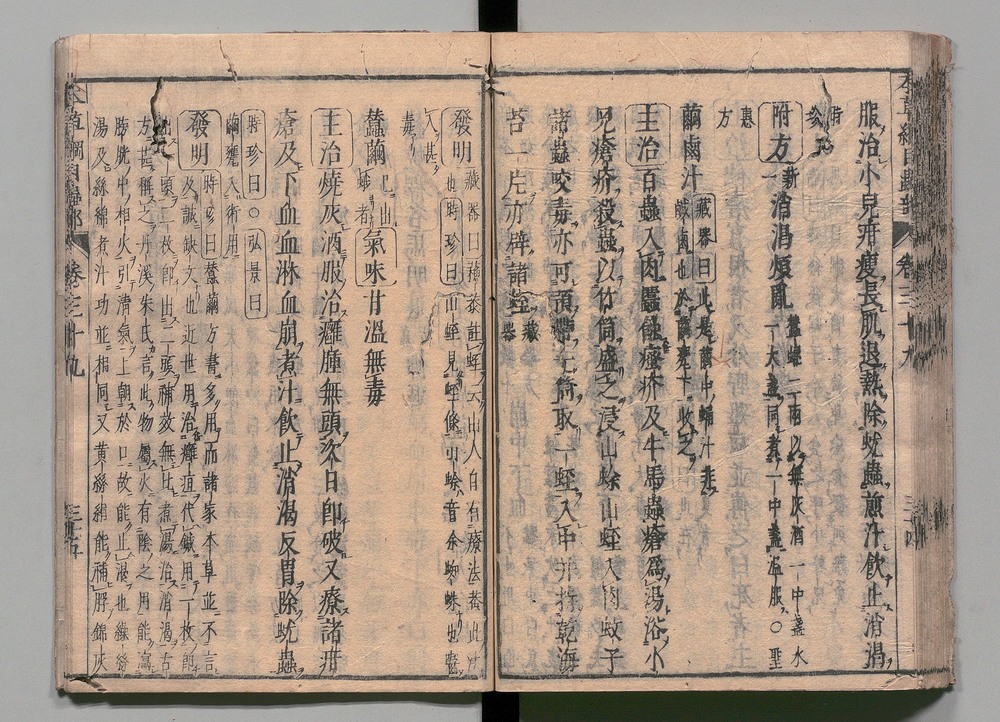 服治小兒疳瘦長肌退熱除蚘蟲煎汁飲止消渴
時珍
附方 新一 消渴煩亂 蠶蛹二兩以無灰酒一中盞水一大盞同煮一中盞溫服○聖
惠方
繭鹵汁 藏器曰此是繭中蛹汁非鹹鹵也於繭甕下收之
主治 百蟲入肉䘌蝕瘙疥及牛馬蟲瘡為湯浴小
兒瘡疥殺蟲以竹筒盛之浸山蜍山蛭入肉蚊子
諸蟲咬毒亦可預帶一筒取一蛭入中并持乾海
苔一片亦辟諸蛭 藏器
發明 藏器曰蘇恭註蛭云山人自有療法蓋此法也 時珍曰山蛭見蛭條山蜍音余蜘蛛也齧
人甚毒
蠶繭 已出蛾者 氣味 甘溫無毒
主治 燒灰酒服治癰腫無頭次日即破又療諸疳
瘡及下血血淋血崩煮汁飲止消渴反胃除蚘蟲
時珍曰○弘景曰
繭甕入術用
發明 時珍曰蠶繭方書多用而諸家本草並不言
及誠缺文也近世用治癰疽代鍼用一枚即
出一頭二枚即出二頭神效無比煮湯治消渴古
方甚稱之丹溪朱氏言此物屬火有陰之用能瀉
膀胱中相火引清氣上朝於口故能止渴也繰絲
湯及絲綿煮汁功並相同又黃絲絹能補脬錦灰
卷三十九
三十五